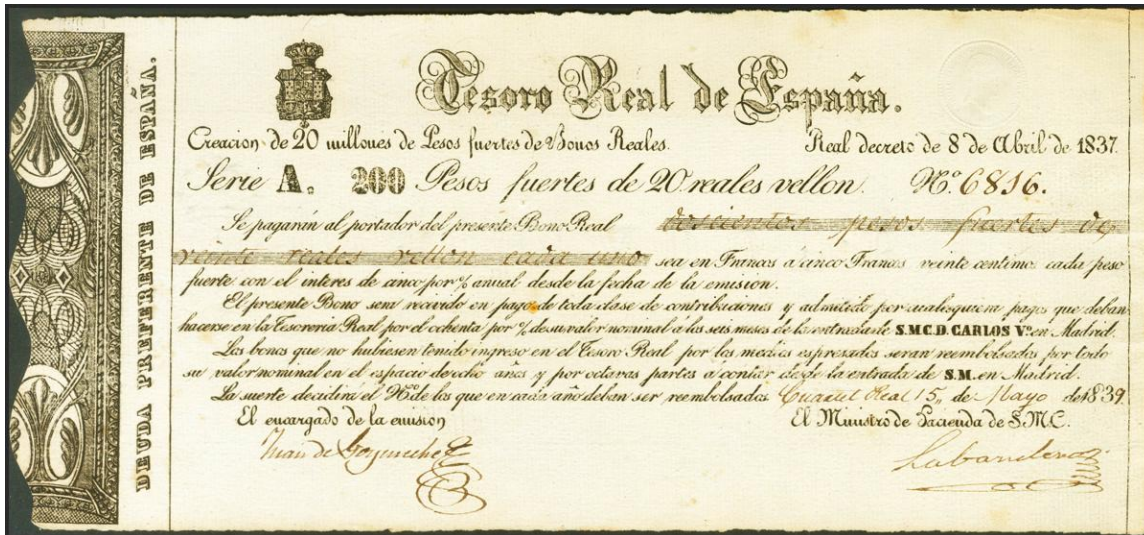 DEUDA PREFERENTE DE ESPAÑA.
Tesoro Real de España.
Creacion de 20 millones de Pesos fuertes de Bonos Reales. Real decreto de 8 de Abril de 1837.
Serie A. 200 Pesos fuertes de 20 reales vellon. Nº 6816.
Se pagarán al portador del presente Bono Real doscientos pesos fuertes de
veinte reales vellon cada uno sea en Francos á cinco Francos veinte centimos cada peso
fuerte con el interes de cinco por % anual desde la fecha de la emision.
El presente Bono sera recivido en pago de toda clase de contribuciones y admitido por cualesquiera pagos que deban
hacerse en la Tesoreria Real por el ochenta por % de su valor nominal á los seis meses de la entrada de S.M.C.D. CARLOS Vº en Madrid.
Los bonos que no hubiesen tenido ingreso en el Tesoro Real por los medios espresados seran reembolsados por todo
su valor nominal en el espacio de ocho años y por octavas partes a contar desde la entrada de S.M. en Madrid.
La suerte decidirá el Nº de los que en cada año deban ser reembolsados. Cuartel Real 15 de Mayo de 1839.
El encargado de la emision El Ministro de Hacienda de S.M.C.
Juan de Goyeneche Labandero